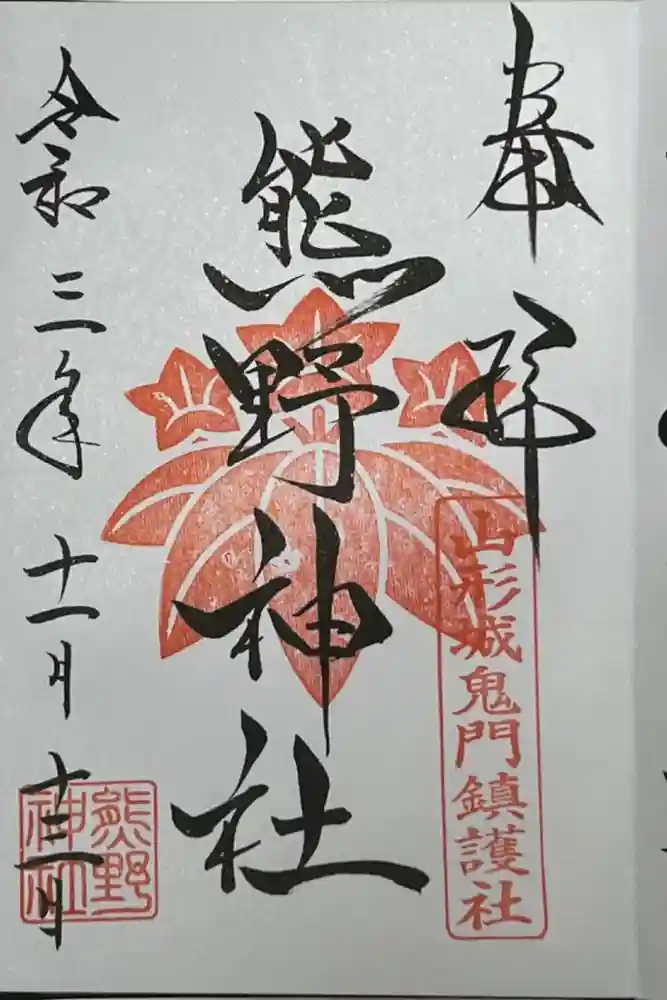 奉拝
山形城鬼門鎮護社
熊野神社
令和三年十一月十二日
熊野
神社